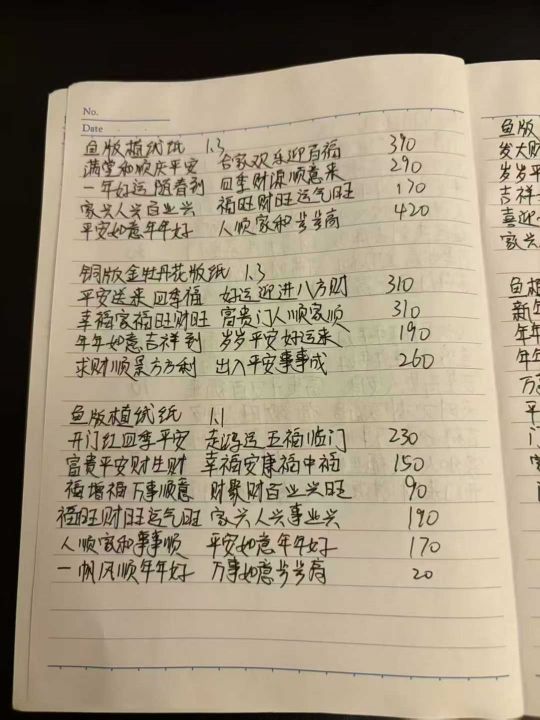 No.
Date
鱼版植绒纸 1.3
满堂和顺庆平安 合家欢乐迎百福 390
一年好运随春到 四季财源顺意来 290
家兴人兴百业兴 福旺财旺运气旺 170
平安如意年年好 人顺家和步步高 420
铜版金牡丹花版纸 1.3
平安送来四季福 好运迎进八方财 310
幸福家福旺财旺 富贵门人顺家顺 310
年年如意吉祥到 岁岁平安好运来 190
求财顺景方方利 出入平安事事成 260
鱼版植绒纸 1.1
开门红四季平安 走鸿运五福临门 230
富贵平安财生财 幸福安康福中福 150
福增福万事顺意 财聚财百业兴旺 90
福旺财旺运气旺 家兴人兴事业兴 190
人顺家和事事顺 平安如意年年好 170
一帆风顺年年好 万事如意步步高 20
鱼版
发大财
岁岁平
吉祥
喜迎
家兴
鱼植
新年
年年
年年
万事
平
门